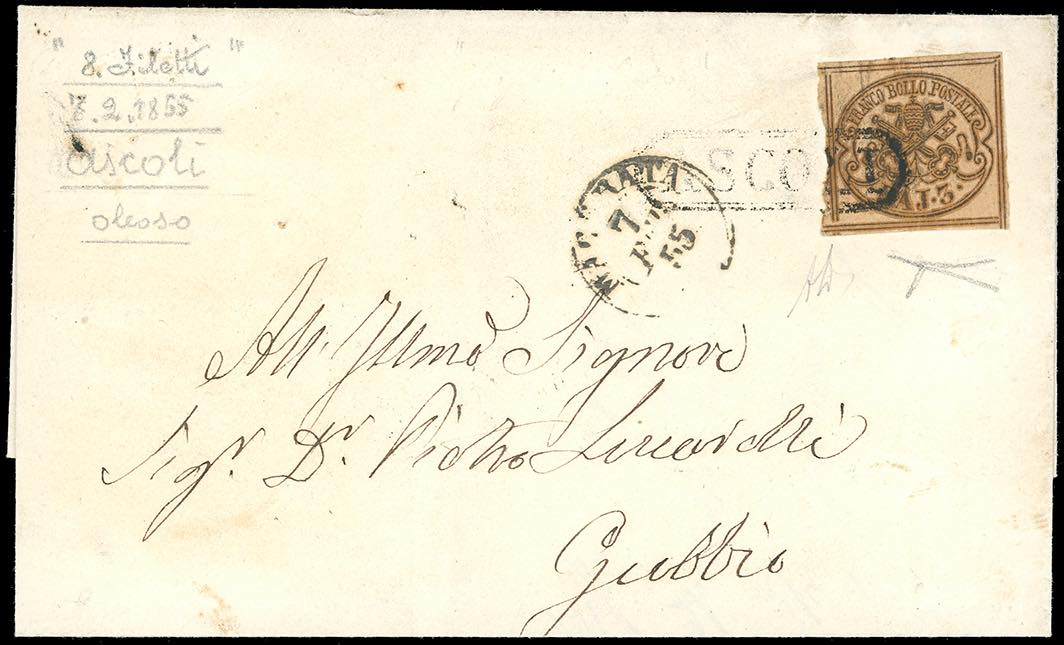 " 8. Filetti "
7.2.1855
Ascoli
oleoso
FRANCO BOLLO POSTALE
BAJ. 3.
ASCOLI
MACERATA
7
FEB
55
All' Illmo Signore
Sigr. Dr. Pietro Lucarelli
Gubbio